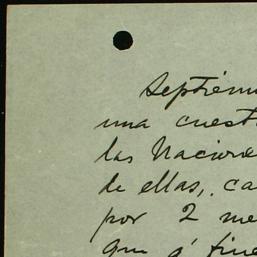 Septiém
una cuest
las Nacione
de ellas, ca
por 2 me
que á fine